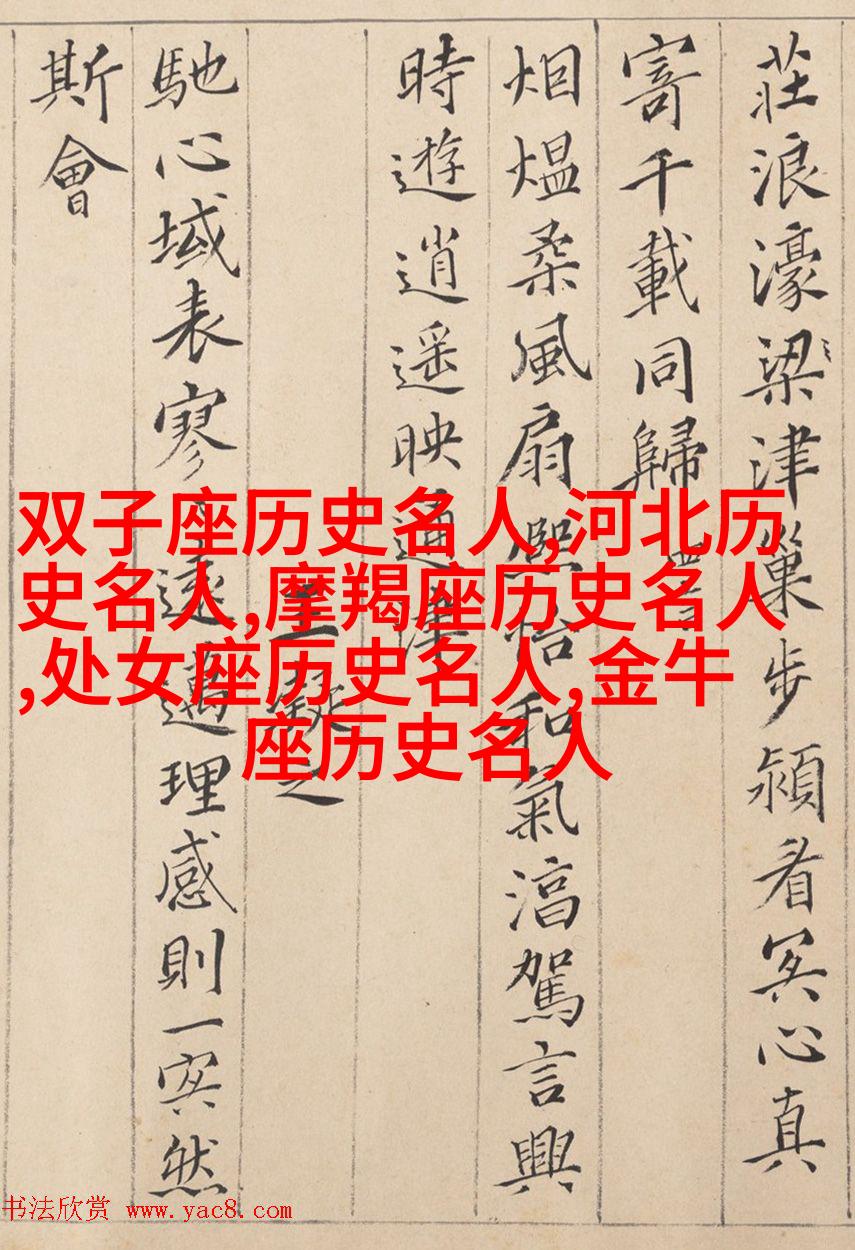 莊浪濠梁津巢步潁湄冥心真
寄千載同歸
烟熅柔風扇熙怡和氣淳駕言興
時遊逍遥映通津
王凝之
馳心域表寥遠邁理感則一冥然
斯會
双子座历史名人,河北历
史名人,摩羯座历史名人
,处女座历史名人,金牛
座历史名人
书法欣赏 www.yac8.com